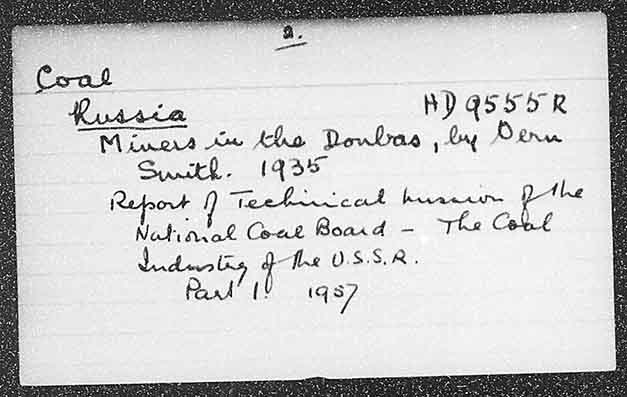 a.
Coal
Russia HD 9555R
Miners in the Donbas, by Vern
Smith. 1935
Report of Technical mission of the
National Coal Board - The Coal
Industry of the U.S.S.R.
Part 1. 1957